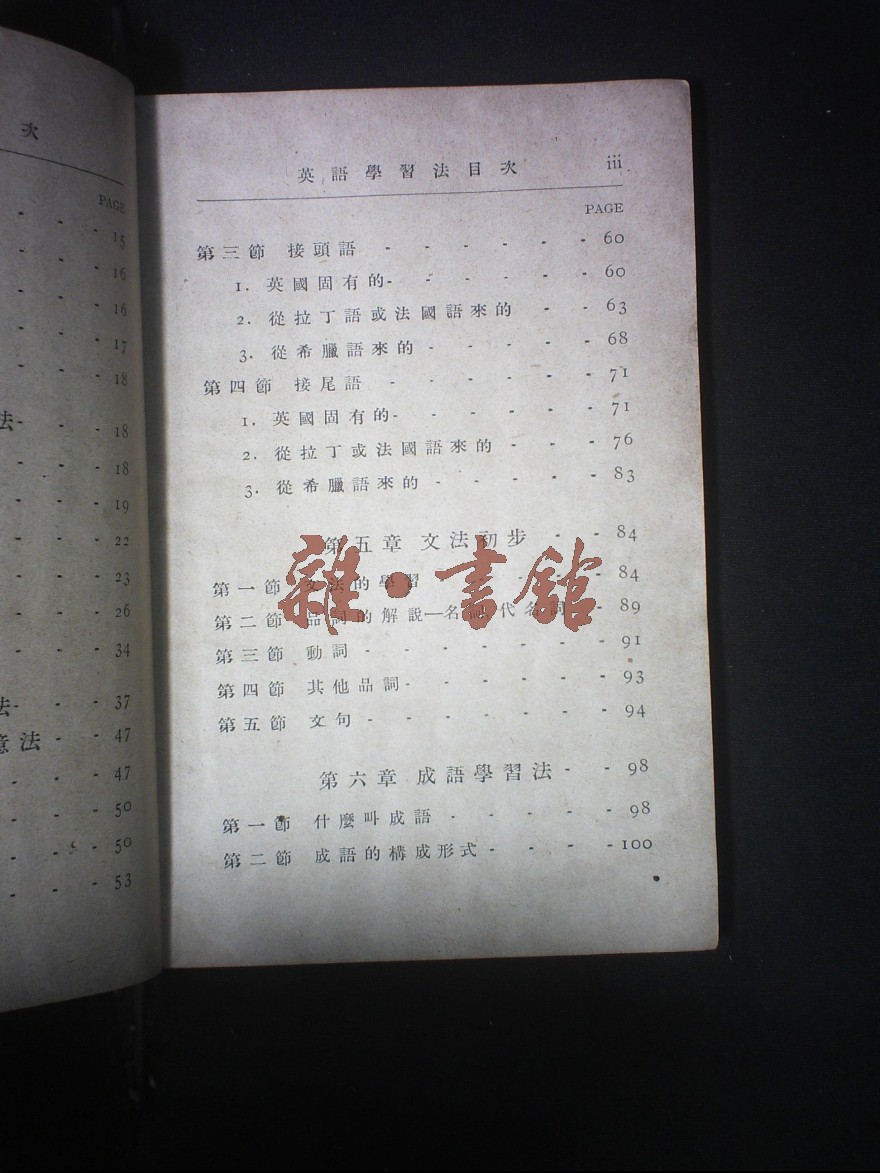 次
PAGE
15
16
16
17
18
法 - - 18
18
19
22
23
26
34
法 - - 37
意法 - - 47
47
50
50
53
英語學習法目次 iii
PAGE
第三節 接頭語 - - - - - - 60
1. 英國固有的 - - - - - - 60
2. 從拉丁語或法國語來的 - - 63
3. 從希臘語來的 - - - - - 68
第四節 接尾語 - - - - - - 71
1. 英國固有的 - - - - - - 71
2. 從拉丁或法國語來的 - - - 76
3. 從希臘語來的 - - - - - 83
第五章 文法初步 - - 84
第一節 文法的學習 - - - - 84
第二節 品詞的解說—名詞代名詞 - 89
第三節 動詞 - - - - - - - 91
第四節 其他品詞 - - - - - - 93
第五節 文句 - - - - - - - 94
第六章 成語學習法 - - 98
第一節 什麼叫成語 - - - - - 98
第二節 成語的構成形式 - - - - 100
雜·書館